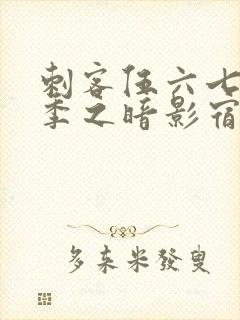 刺客伍六七
季之暗影宿
多来米發叟